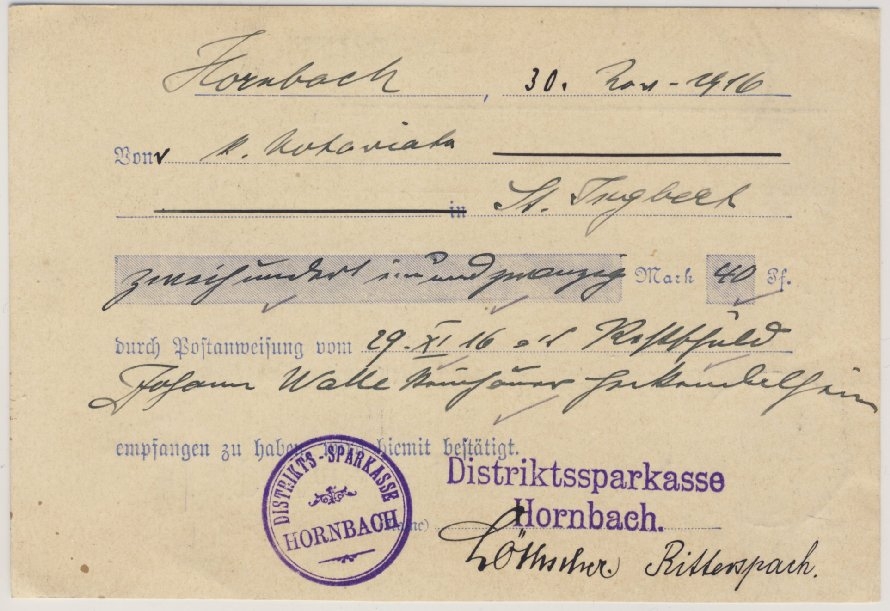 Hornbach, 30. Nov. 1916
Von K. Notariate
in St. Ingbert
zweihundert einundzwanzig Mark 40 Pf.
durch Postanweisung vom 29. XI 16 als Restschuld
Johann Walle
empfangen zu haben, wird hiemit bestätigt.
DISTRIKTS-SPARKASSE
HORNBACH
Distriktssparkasse
Hornbach.
Löthscher. Ritterspach.